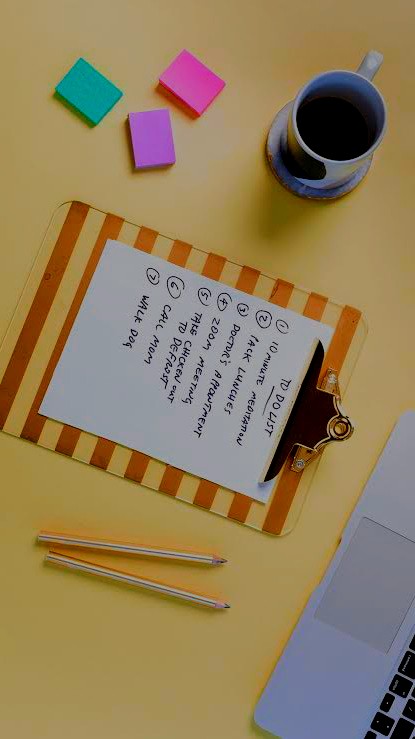 TO DO LIST
① 10 MINUTE MEDITATION
② PACK LUNCHES
③ DOCTOR'S APPOINTMENT
④ ZOOM MEETING
⑤ TAKE CHICKEN OUT
TO DEFROST
⑥ CALL MUM
⑦ WALK DOG